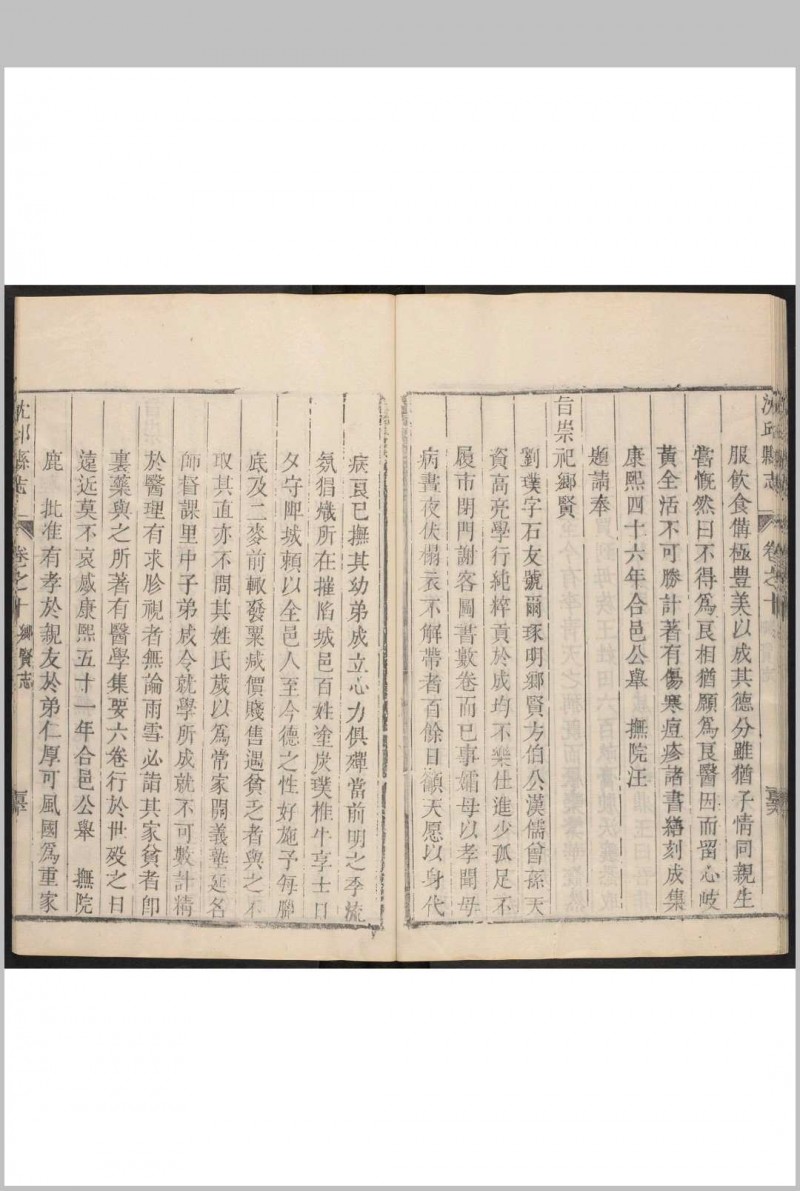 沈邱縣志
卷之十
服飲食備極豊美以成其德分雖猶子情同親生
嘗慨然曰不得爲良相猶願爲良醫因而留心岐
黃全活不可勝計著有傷寒痘疹諸書繕刻成集
康熙四十六年合邑公舉　撫院汪
題請奉
旨崇祀鄉賢
劉璞字石友號爾琢明鄉賢方伯公漢儒曾孫天
資高亮學行純粹貢於成均不樂仕進少孤足不
履市閉門謝客圖書數卷而已事孀母以孝聞母
病晝夜伏榻衣不解帶者百餘日籲天愿以身代
疾良已撫其幼弟成立心力俱殫當前明之季流
氛猖熾所在摧陷城邑百姓塗炭璞椎牛享士日
夕守陴城賴以全邑人至今德之性好施予每臘
底及二麥前輙發粟减價賤售遇貧乏者與之不
取其直亦不問其姓氏歲以爲常家開義塾延名
師督課里中子弟咸令就學所成就不可數計精
於醫理有求胗視者無論雨雪必詣其家貧者卽
裹藥與之所著有醫學集要六卷行於世殁之日
遠近莫不哀感康熙五十一年合邑公舉　撫院
鹿　批准有孝於親友於弟仁厚可風國爲重家
沈邱縣志
卷之十　鄉賢志